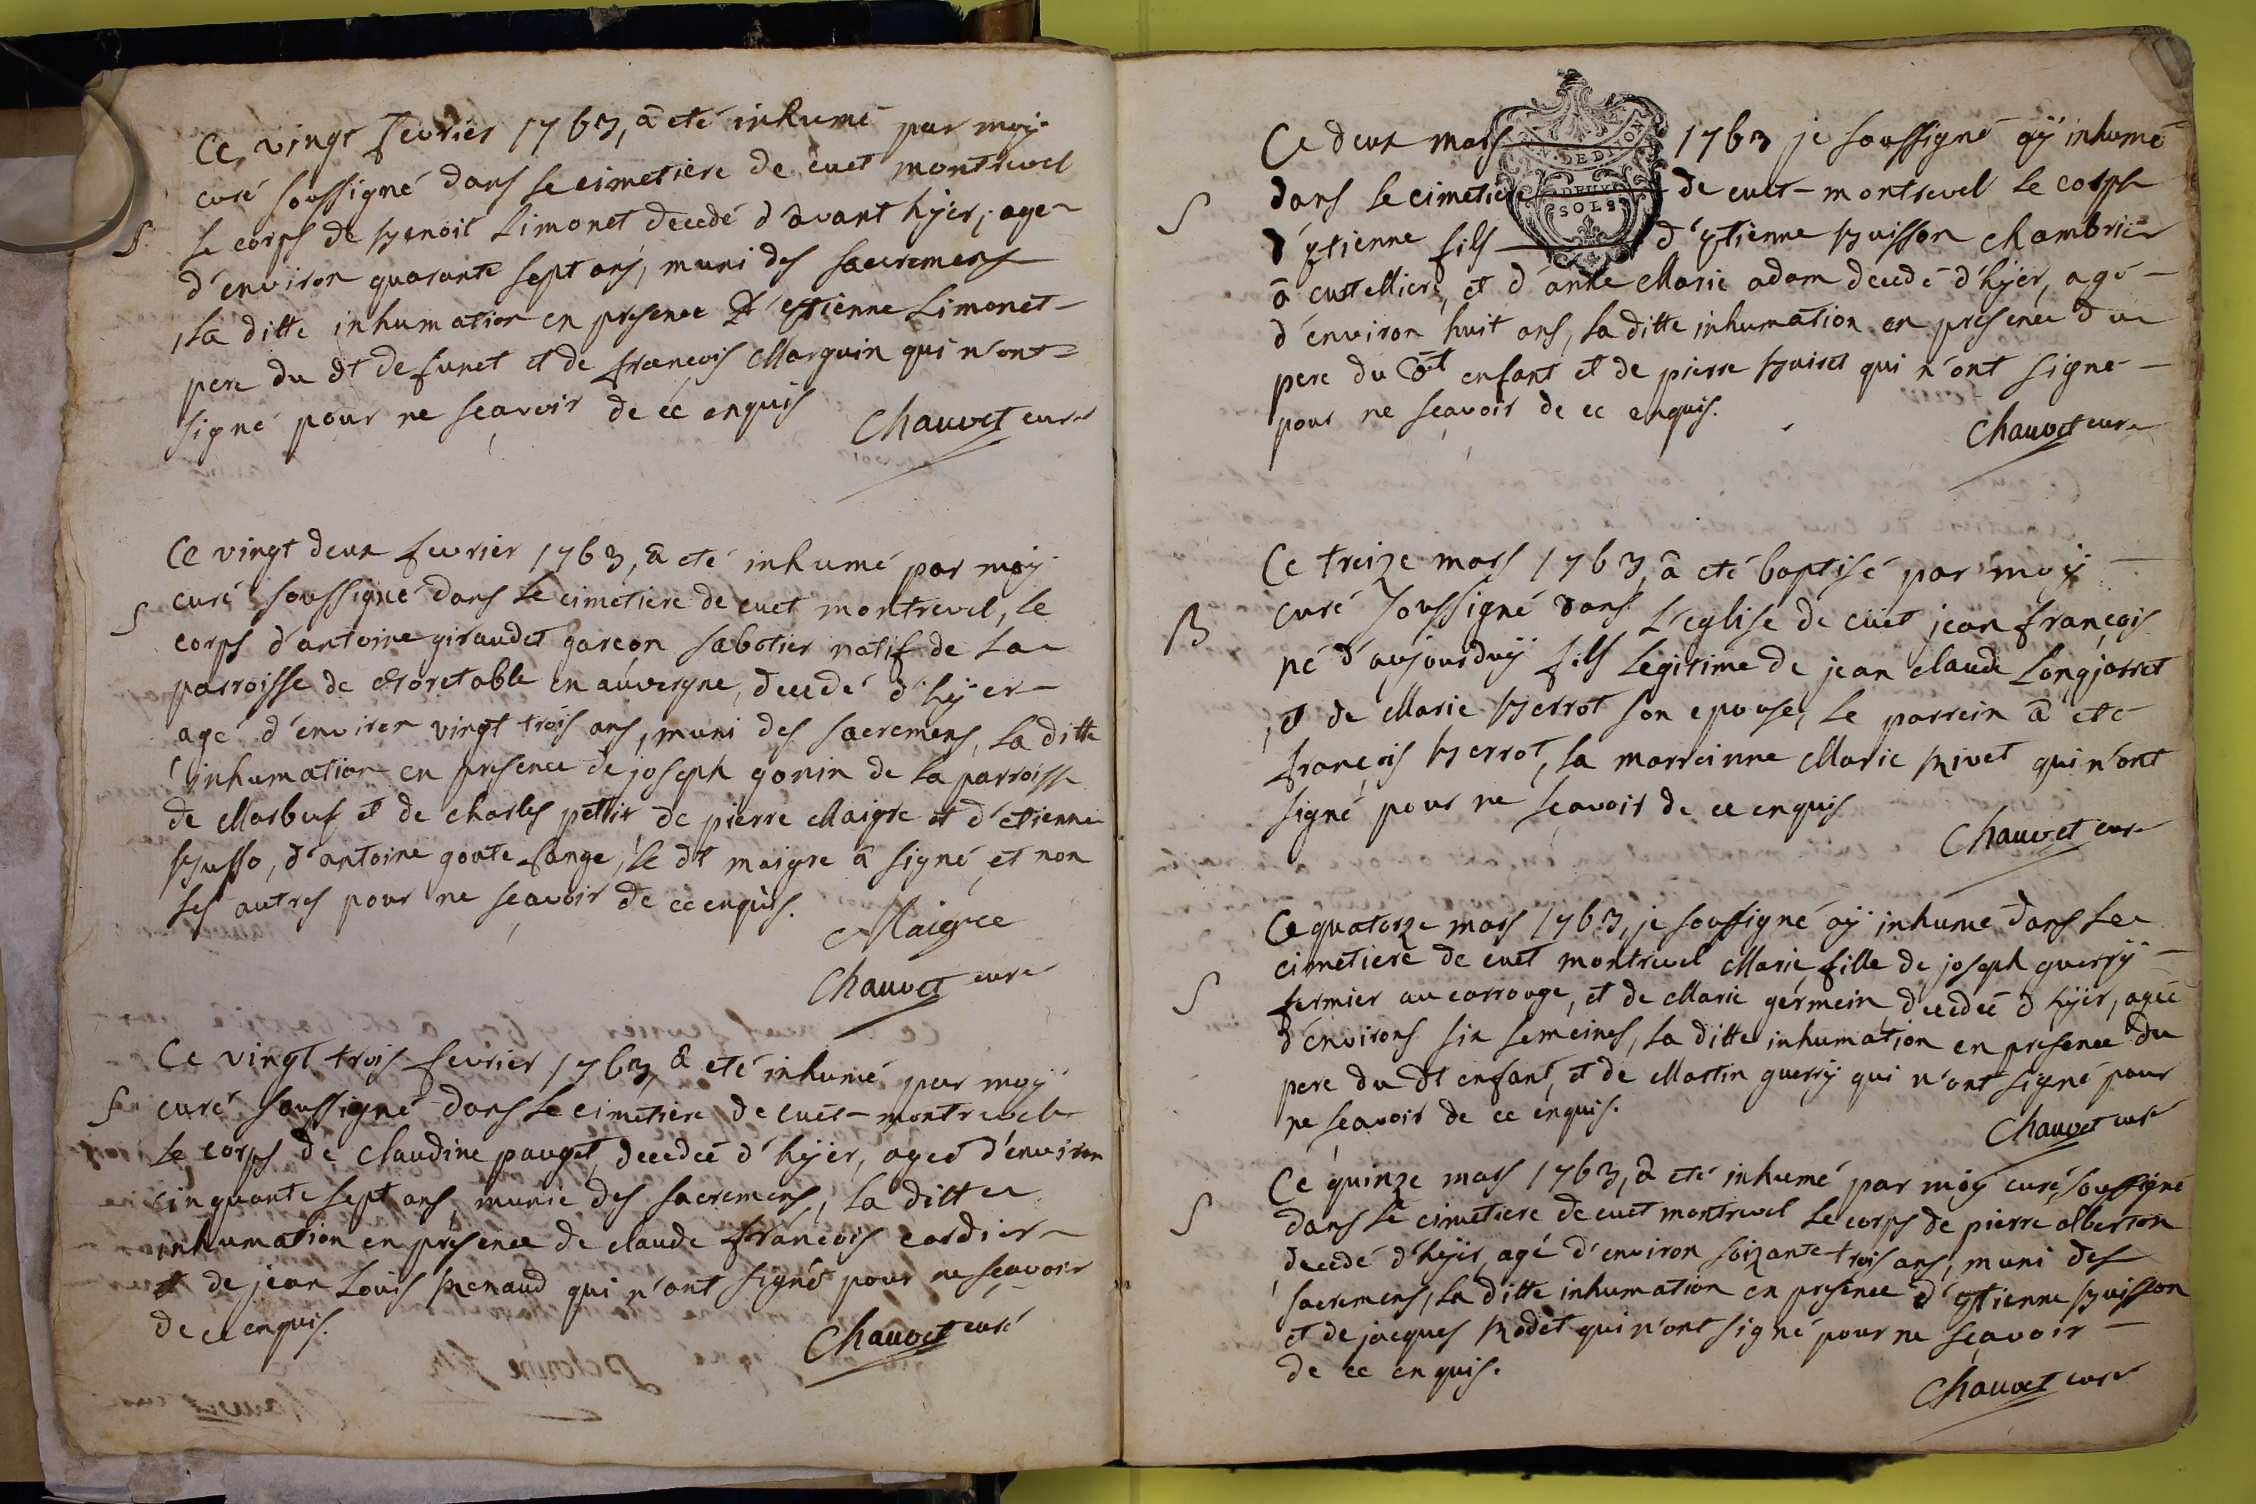 Ce vingt fevrier 1763, a eté inhumé par moy
curé soussigné dans le cimetiere de cuet montrevel
S le corps de Benoit Limonet decedé d'avant hÿer, agé
d'environ quarante sept ans, muni des sacremens
, la ditte inhumation en presence d'estienne Limonet
pere du dt defunct et de françois Marguin qui n'ont
signé pour ne sçavoir de ce enquis
Chauvet curé
Ce vingt deux fevrier 1763, a eté inhumé par moÿ
S curé soussigné dans le cimetiere de cuet montrevel, le
corps d'antoine giraudet garçon sabotier natif de la
parroisse de en auvergne, decedé d'hÿer
agé d'environ vingt trois ans, muni des sacremens, la ditte
inhumation en presence de joseph gonin de la parroisse
de Marbeuf et de charles pettit de pierre Maigre et d'etienne
Busso, d'antoine goute fange, le dt maigre a signé, et non
les autres pour ne sçavoir de ce enquis.
Maigre
Chauvet curé
Ce vingt trois fevrier 1763, a eté inhumé par moÿ
S curé soussigné dans le cimetiere de cuet-montrevel
le corps de claudine pauget, decedeé d'hÿer, ageé d'environ
cinquante sept ans, munie des sacremens, la ditte
inhumation en présence de claude françois cordier
et de jean Louis Renaud qui n'ont signé pour ne sçavoir
de ce enquis.
Chauvet curé
N. DE DIJON
DEUX
SOLS
Ce deux mars 1763 je soussigné aÿ inhumé
S dans le cimetiere de cuet-montrevel le corps
d'ytienne fils d'ytienne Buisson chambrier
a custelliere, et d'anne Marie adam decedé d'hÿer, agé
d'environ huit ans, la ditte inhumation en presence du
pere du dt enfant et de pierre Buiret qui n'ont signé
pour ne sçavoir de ce enquis.
Chauvet curé
Ce treize mars 1763, a eté baptisé par moÿ
B curé soussigné dans L'eglise de cüet jean françois
né d'aujourduÿ fils legitime de jean claude Longjarret
, et de Marie Berrot son epouse, le parrein a eté
françois Berrot, la marreinne Marie Rivet qui n'ont
signé pour ne sçavoir de ce enquis
Chauvet curé
Ce quatorze mars 1763, je soussigné aÿ inhumé dans le
S cimetiere de cuet montrevel Marie fille de joseph guerrÿ
fermier au carrouge, et de Marie germein, decedeé d'hÿer, ageé
d'environs six semeines, la ditte inhumation en presence du
pere du dt enfant, et de Martin guerrÿ qui n'ont signé pour
ne sçavoir de ce enquis.
Chauvet curé
Ce quinze mars 1763, a eté inhumé par moÿ curé soussigné
S dans le cimetiere de cuet montrevel le corps de pierre alberton
decedé d'hÿer, agé d'environ soixante trois ans, muni des
sacremens, la ditte inhumation en presence d'ytienne Buisson
et de jacques Rodet qui n'ont signé pour ne sçavoir
de ce enquis.
Chauvet curé